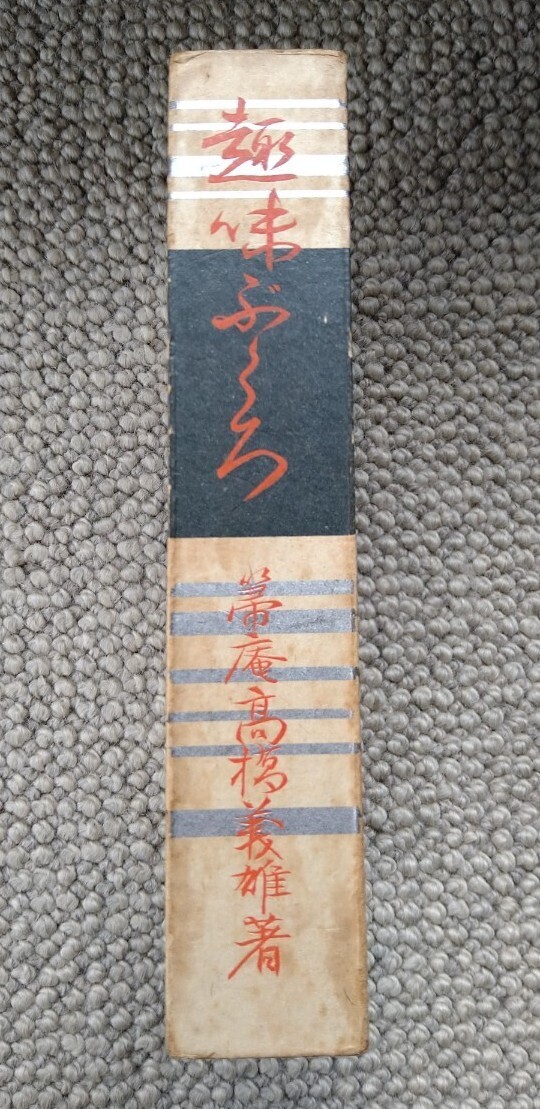 趣味ぶくろ
箒庵高橋義雄著